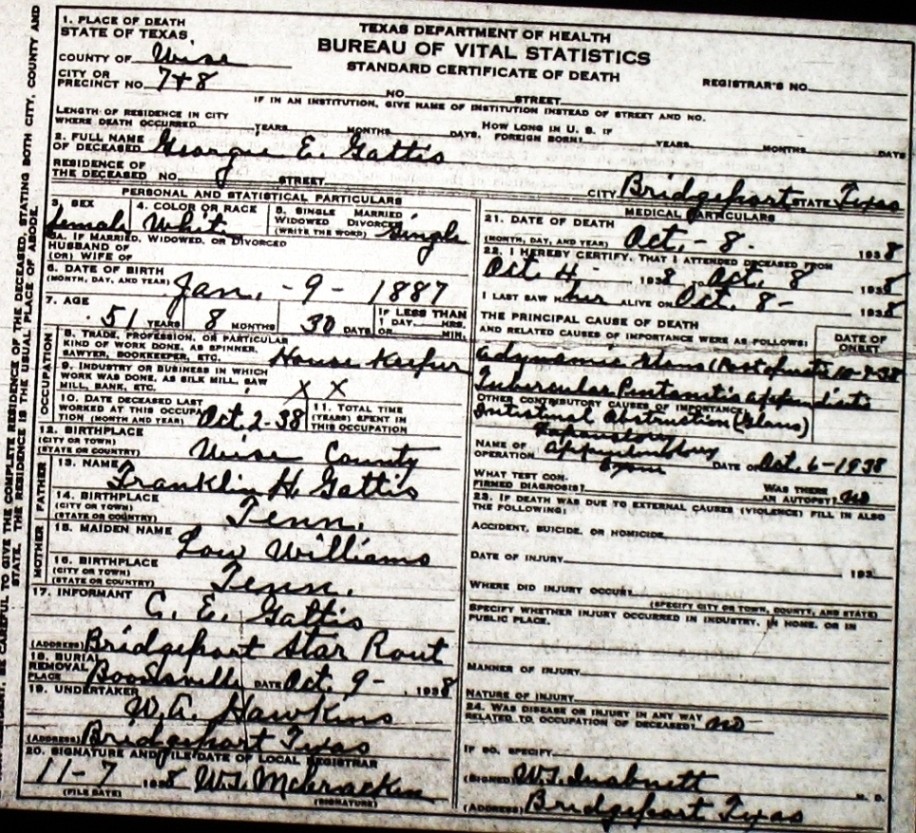 TEXAS DEPARTMENT OF HEALTH
BUREAU OF VITAL STATISTICS
STANDARD CERTIFICATE OF DEATH
REGISTRAR'S NO.
1. PLACE OF DEATH
STATE OF TEXAS
COUNTY OF Wise
CITY OR PRECINCT NO. 7+8 NO. STREET
IF IN AN INSTITUTION, GIVE NAME OF INSTITUTION INSTEAD OF STREET AND NO.
LENGTH OF RESIDENCE IN CITY WHERE DEATH OCCURRED YEARS MONTHS DAYS. HOW LONG IN U. S. IF FOREIGN BORN? YEARS MONTHS DAYS
2. FULL NAME OF DECEASED Georgie E. Gattis
RESIDENCE OF THE DECEASED NO. STREET CITY Bridgeport STATE Texas
PERSONAL AND STATISTICAL PARTICULARS
3. SEX Female
4. COLOR OR RACE White
5. SINGLE MARRIED WIDOWED DIVORCED (WRITE THE WORD) Single
5A. IF MARRIED, WIDOWED, OR DIVORCED
HUSBAND OF
(OR) WIFE OF
6. DATE OF BIRTH (MONTH, DAY, AND YEAR) Jan. - 9 - 1887
7. AGE 51 YEARS 8 MONTHS 30 DAYS IF LESS THAN 1 DAY HRS. OR MIN.
OCCUPATION
8. TRADE, PROFESSION, OR PARTICULAR KIND OF WORK DONE, AS SPINNER, SAWYER, BOOKKEEPER, ETC. House Keeper
9. INDUSTRY OR BUSINESS IN WHICH WORK WAS DONE, AS SILK MILL, SAW MILL, BANK, ETC. X X
10. DATE DECEASED LAST WORKED AT THIS OCCUPATION (MONTH AND YEAR) Oct 2-38
11. TOTAL TIME (YEARS) SPENT IN THIS OCCUPATION
12. BIRTHPLACE (CITY OR TOWN) (STATE OR COUNTRY) Wise County
FATHER
13. NAME Franklin H. Gattis
14. BIRTHPLACE (CITY OR TOWN) (STATE OR COUNTRY) Tenn.
MOTHER
15. MAIDEN NAME Lou Williams
16. BIRTHPLACE (CITY OR TOWN) (STATE OR COUNTRY) Tenn.
17. INFORMANT C. E. Gattis
(ADDRESS) Bridgeport Star Rout
18. BURIAL REMOVAL PLACE Boonsville DATE Oct. 9- 1938
19. UNDERTAKER W.A. Hawkins
(ADDRESS) Bridgeport Texas
20. SIGNATURE AND FILE DATE OF LOCAL REGISTRAR
11-7 1938 W.T. McCracken
(FILE DATE) (SIGNATURE)
MEDICAL PARTICULARS
21. DATE OF DEATH (MONTH, DAY, AND YEAR) Oct. - 8 - 1938
22. I HEREBY CERTIFY, THAT I ATTENDED DECEASED FROM
Oct 4 - 1938 Oct. 8 1938
I LAST SAW her ALIVE ON Oct. 8- 1938
THE PRINCIPAL CAUSE OF DEATH
AND RELATED CAUSES OF IMPORTANCE WERE AS FOLLOWS: DATE OF ONSET
Adynamic Ileus
Tubercular Peritonitis appendicitis
OTHER CONTRIBUTORY CAUSES OF IMPORTANCE
Intestinal Obstruction (Ileus)
NAME OF OPERATION DATE OF Oct. 6-1938
WHAT TEST CONFIRMED DIAGNOSIS? WAS THERE AN AUTOPSY? no
23. IF DEATH WAS DUE TO EXTERNAL CAUSES (VIOLENCE) FILL IN ALSO THE FOLLOWING:
ACCIDENT, SUICIDE, OR HOMICIDE
DATE OF INJURY 193
WHERE DID INJURY OCCUR?
(SPECIFY CITY OR TOWN, COUNTY, AND STATE)
SPECIFY WHETHER INJURY OCCURRED IN INDUSTRY, IN HOME, OR IN PUBLIC PLACE.
MANNER OF INJURY
NATURE OF INJURY
24. WAS DISEASE OR INJURY IN ANY WAY RELATED TO OCCUPATION OF DECEASED? no
IF SO, SPECIFY
(SIGNED) W.T. Inabnett M. D.
(ADDRESS) Bridgeport Texas
TO GIVE THE COMPLETE RESIDENCE OF THE DECEASED, STATING BOTH CITY, COUNTY AND
STATE. THE RESIDENCE IS THE USUAL PLACE OF ABODE.